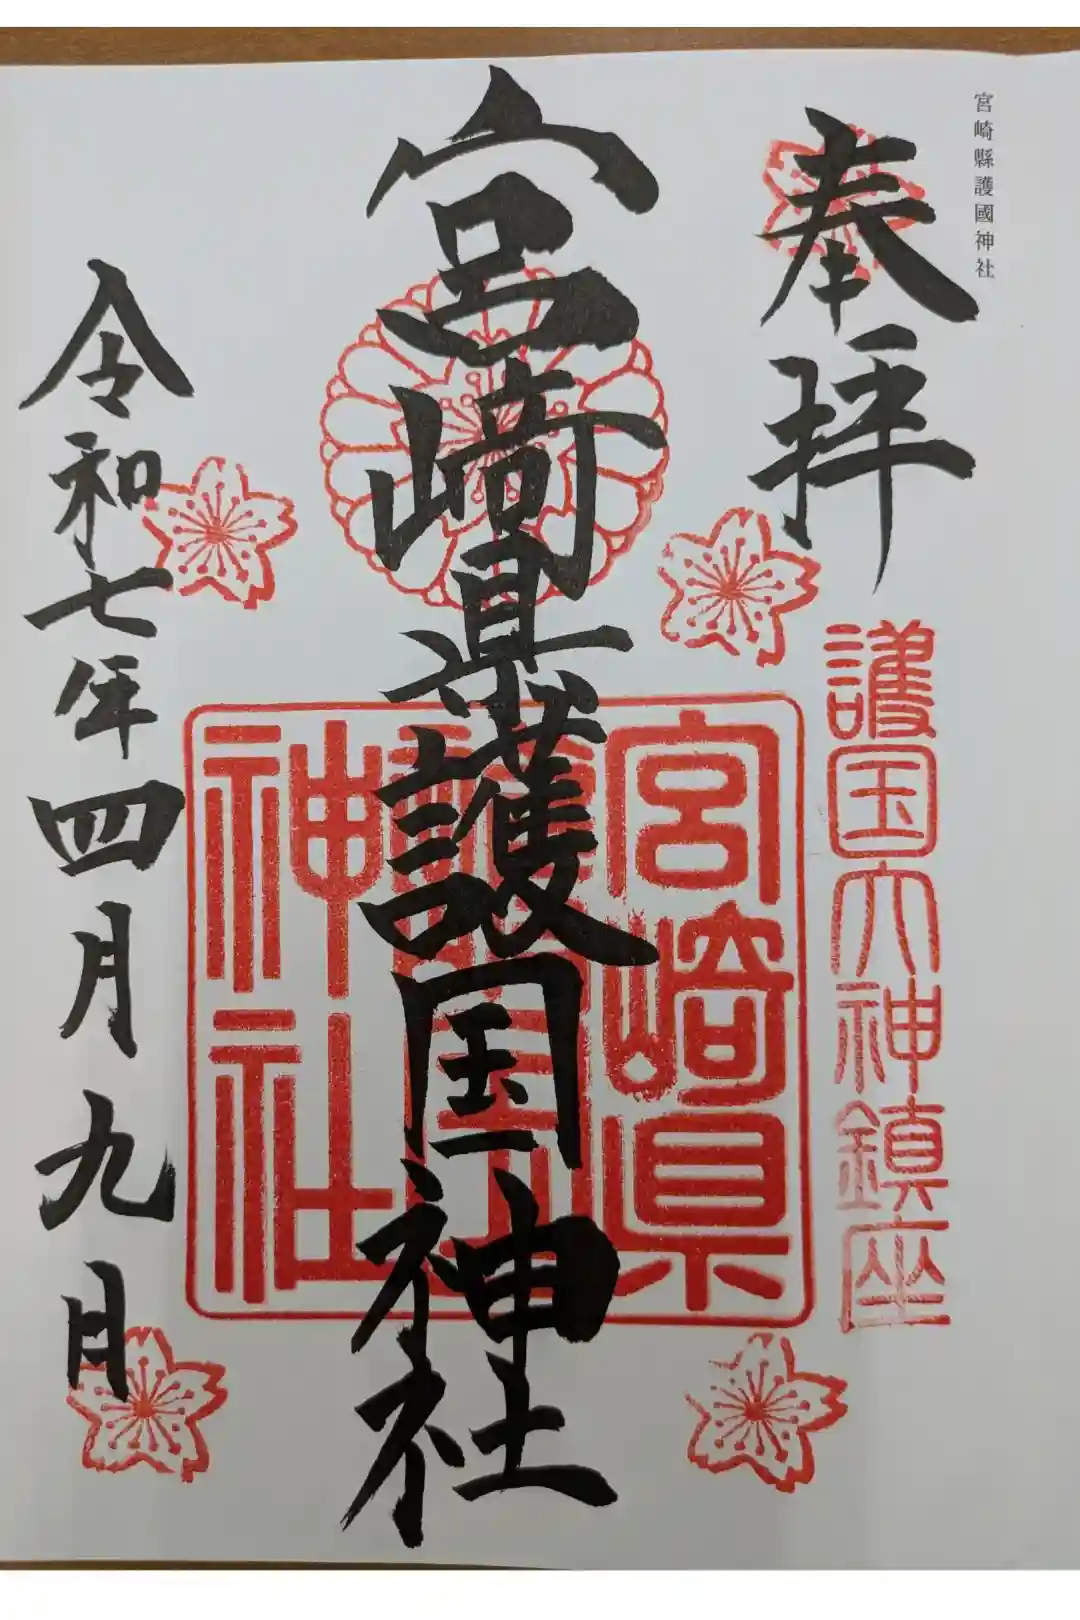 宮崎縣護國神社
奉拝
護国大神鎮座
宮崎県護国神社
宮崎県
護国
神社
令和七年四月九日